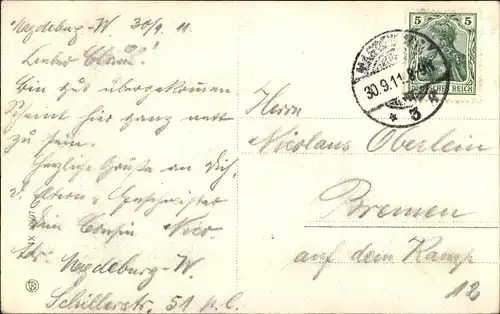 Magdeburg-W. 30/9 11
Lieber Claus!
Bin gut übergekommen
Scheint hier ganz nett
zu sein.
Herzliche Grüße an Dich,
d. Eltern u. Geschwister
Dein Cousin Nico.
Adr. Magdeburg-W.
Schillerstr. 51 p.l.
5 5
DEUTSCHES REICH
30.9.11.8-9N
* 3 h
Herrn
Nicolaus Oberlein
Bremen
auf dem Kamp
12